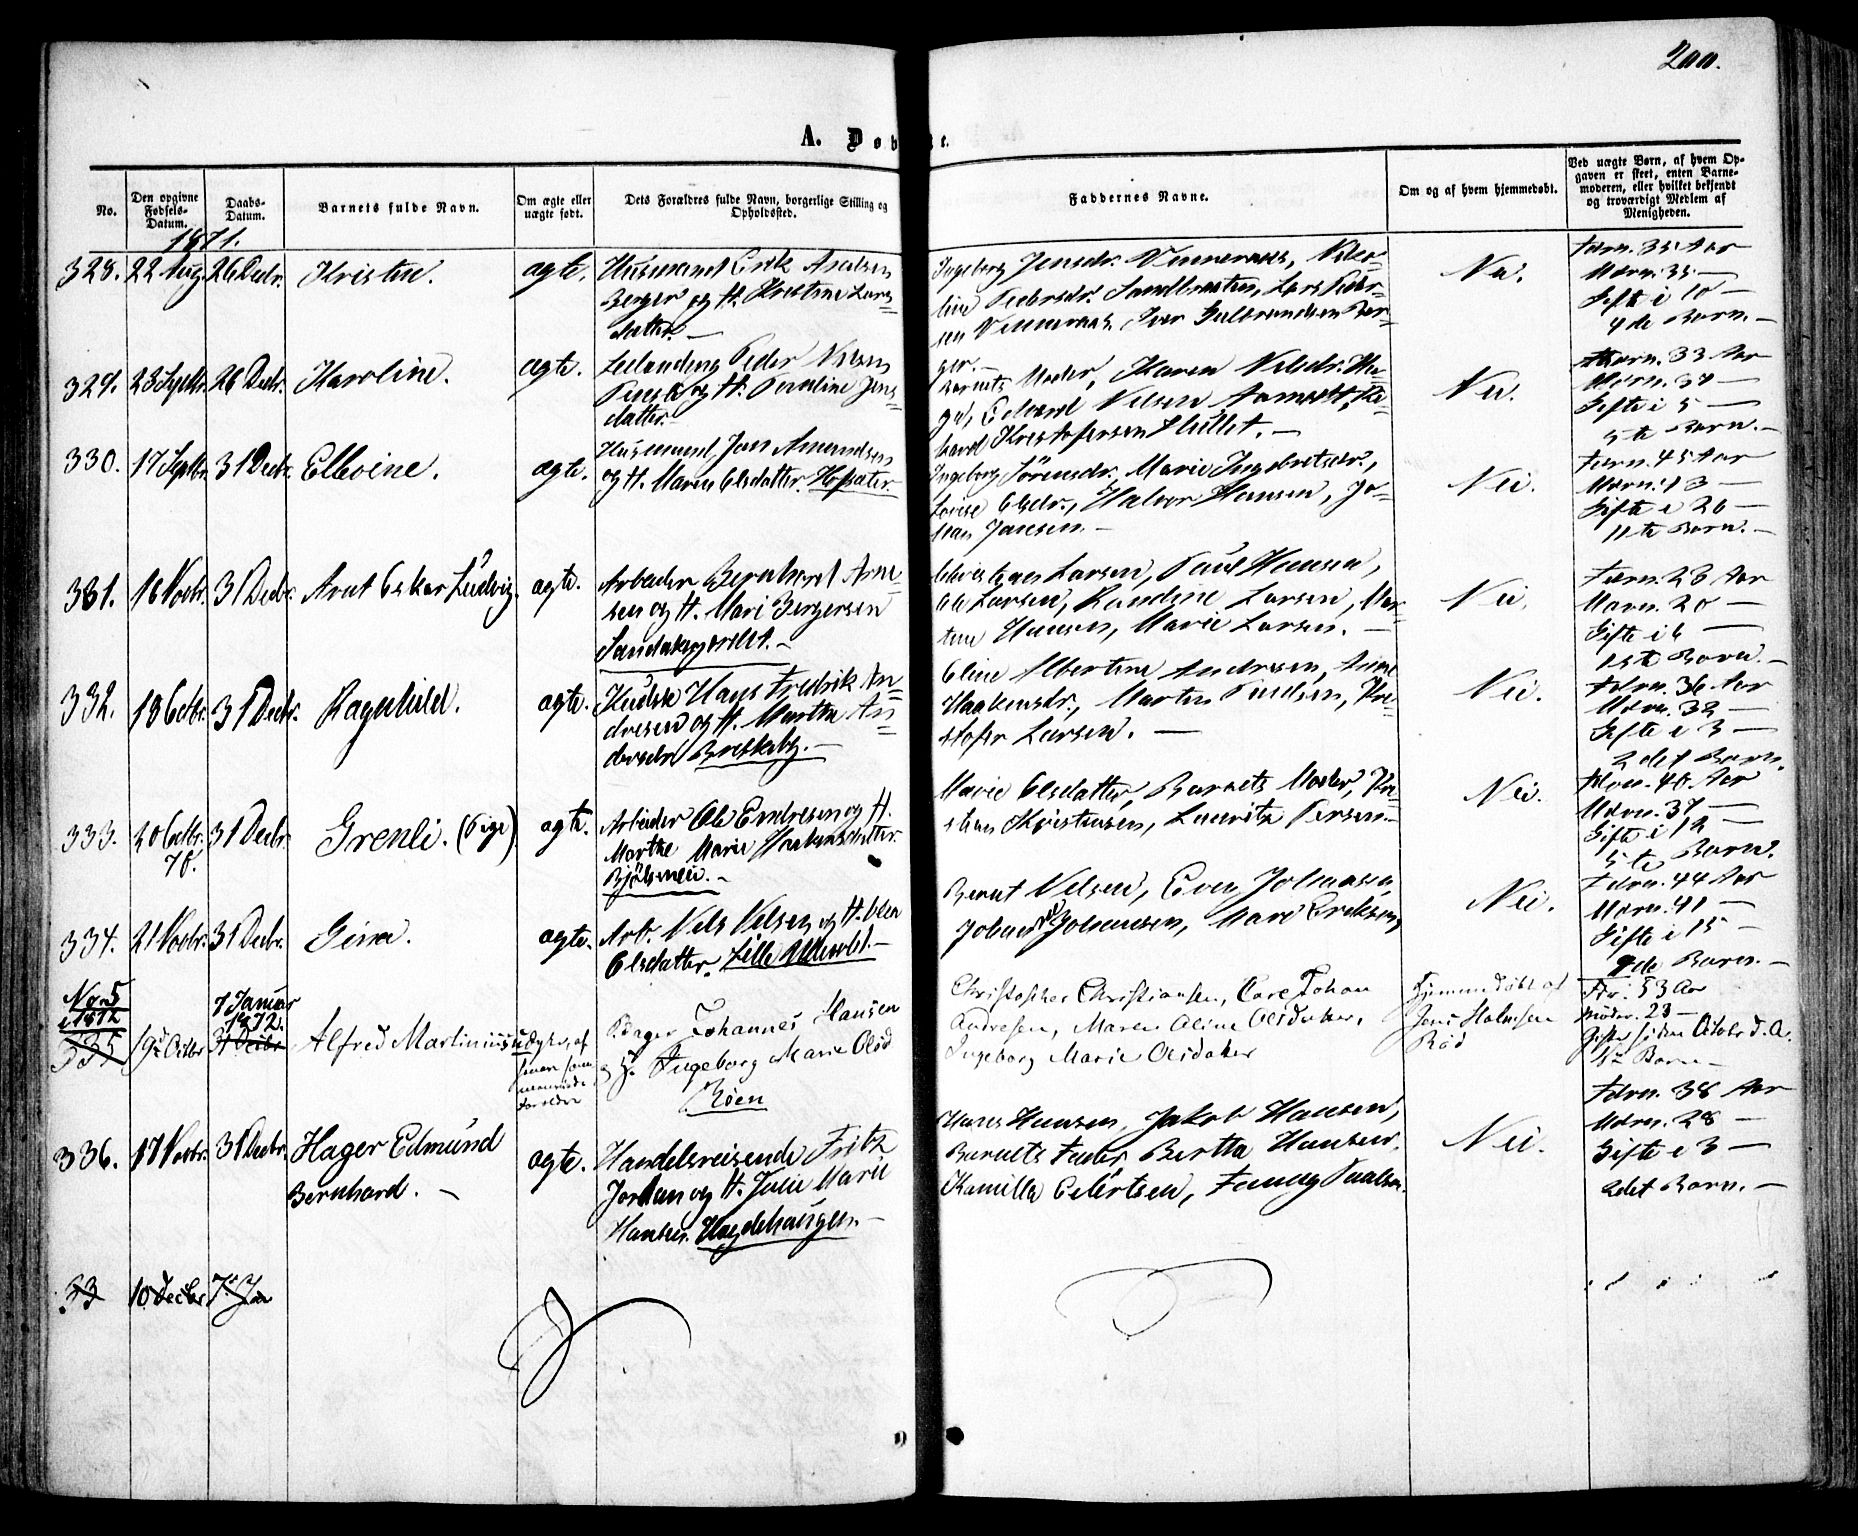 200.
A. Døbte.
No.
Den opgivne Fødsels-Datum.
Daabs-Datum.
Barnets fulde Navn.
Om ægte eller uægte født.
Dets Forældres fulde Navn, borgerlige Stilling og Opholdssted.
Faddernes Navne.
Om og af hvem hjemmedøbt.
Ved uægte Børn, af hvem Opgaven er skeet, enten Barnemoderen, eller hvilket bekjendt og troværdigt Medlem af Menigheden.
1871.
328. 22 Aug. 26 Decbr. Kristine. ægte.
Husmand Erik Axelsen
Berger og H. Kristine Lars
datter. —
Ingeborg Jensdr.
Nei.
Faderen. 35 Aar
Moren. 35 —
Gifte i 10 —
4de Barn. —
329. 23 Septbr. 26 Decbr. Karoline. ægte.
Leilænding Peder Nilsen
og H. Paraline Jens
datter.
Barnets Moder, Karen Nilsdr.
Edvard Nilsen
Kristofersen Hullet. —
Nei.
Faren. 33 Aar
Moren. 34 —
Gifte i 5 —
5te Barn. —
330. 17 Septbr. 31 Decbr. Ellevine. ægte.
Husmand Jan Amundsen
og H. Maren Olsdatter. Hofsæter.
Ingeborg Sörensdr., Marie Ingebretsdr.,
Lovise Olsdr., Halvor Hansen, Jo-
han Jansen. —
Nei.
Faren. 45 Aar
Moren. 43 —
Gifte i 20 —
11te Barn. —
331. 16 Novbr. 31 Decbr. Arnt Oskar Ludvig. ægte.
Arbeider Bernhard Arne-
sen og H. Mari Bergersen
Larsen, Paul Hansen,
Ole Larsen, Randine Larsen, Mar-
tine Hansen, Marie Larsen. —
Nei.
Faren. 23 Aar
Moren. 20 —
Gifte i
1ste Barn. —
332. 18 Octbr. 31 Decbr. Ragnhild. ægte.
Kudsk Hans Fredrik An-
dresen og H. Martha An-
dersdr. Breskeby. —
Oline Albertine Andresen, Anne
Haakensdr., Martin Knudsen, Kri-
stofer Larsen. —
Nei.
Faren. 36 Aar
Moren. 32 —
Gifte i 3 —
2det Barn.
333. 20 Octbr. 70. 31 Decbr. Grenli. (Pige) ægte.
Arbeider Ole Endresen og H.
Marthe Marie Haakensdatter.
Bjölsmeie. —
Marie Olsdatter, Barnets Moder, Kri-
stian Kristiansen, Lauritz Persen —
Nei.
Faren. 40. Aar
Moren. 37 —
Gifte i 12
5te Barn.
334. 21 Novbr. 31 Decbr. Gina. ægte.
Arb. Nils Nilsen og H. Olea
Olsdatter. Lille Ullevold. —
Bernt Nilsen, Even Johansen,
Johan Johansen, Mari Eriksen,
Nei.
Faren. 44 Aar
Moren. 41 —
Gifte i 15 —
9de Barn. —
No. 5
i 1872
335
19de Octbr
7 Januar
1872.
31 Decbr
Alfred Martinius
Uægte, af
senere sam-
menviede
Forældre
Bager Johannes Hansen
og H. Ingeborg Marie Olsd
Röen
Christopher Christiansen, Carl Johan
Andresen, Maren Oline Olsdatter,
Ingeborg Marie Olsdatter
Hjemmedøbt af
Jens Holmsen
Röd
Far. 53 Aar
Moder. 23 —
Gifte siden Octobr d. A.
1ste Barn —
336. 17 Novbr. 31 Decbr.
Hager Edmund
Bernhard. —
ægte.
Handelsreisende Fritz
Jordan og H. Julie Marie
Hansen. Hægdehaugen. —
Hans Hansen, Jakob Hansen,
Barnets Fader, Bertha Hansen,
Kamilla Eilertsen, Fanny Paulsen.
Nei.
Faren. 38 Aar
Moren. 28 —
Gifte i 3 —
2det Barn. —
33 10 Decbr 7de Ja